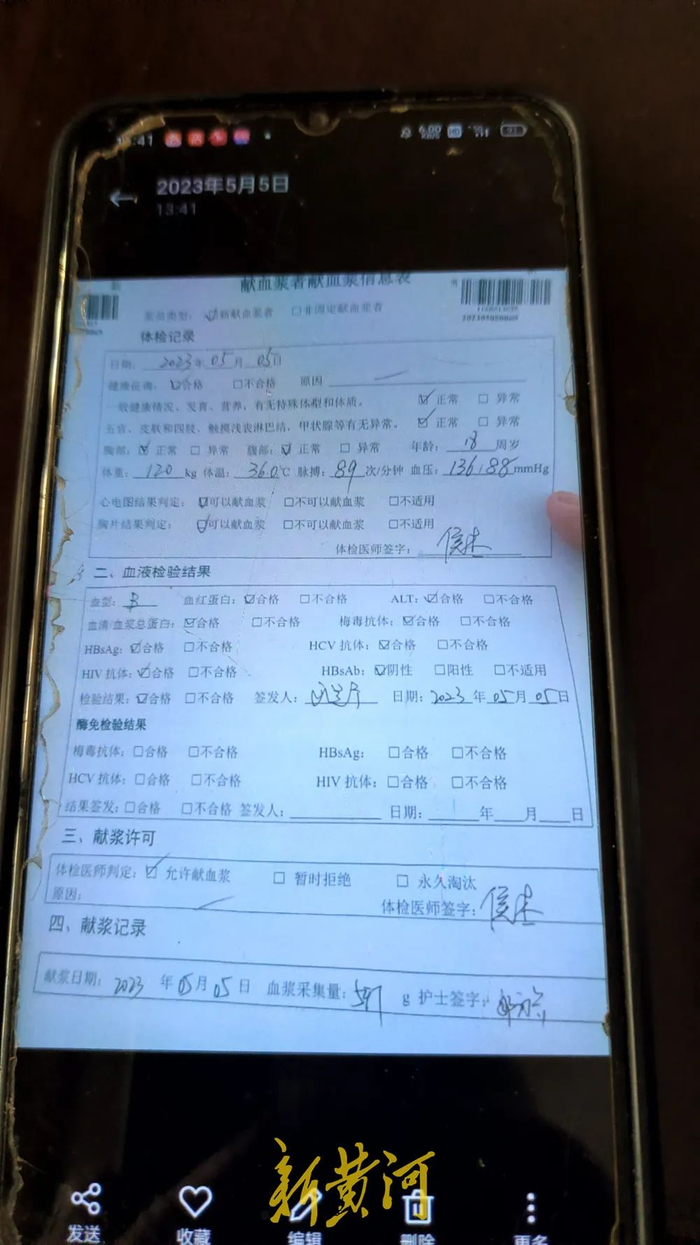 :41
2023年5月5日
13:41
献血浆者献血浆信息表
浆员类型: ☑新献血浆者 □非固定献血浆者
体检记录
日期: 2023年05月05日
健康征询: ☑合格 □不合格 原因
一般健康情况、发育、营养、有无特殊体型和体质。 ☑正常 □异常
五官、皮肤和四肢、触摸浅表淋巴结、甲状腺等有无异常。 ☑正常 □异常
胸部: ☑正常 □异常 腹部: ☑正常 □异常 年龄: 18 周岁
体重: 120 kg 体温: 36.0℃ 脉搏: 89 次/分钟 血压: 136/88 mmHg
心电图结果判定: ☑可以献血浆 □不可以献血浆 □不适用
胸片结果判定: ☑可以献血浆 □不可以献血浆 □不适用
体检医师签字:
二、血液检验结果
血型: B 血红蛋白: ☑合格 □不合格 ALT: ☑合格 □不合格
血清/血浆总蛋白: ☑合格 □不合格 梅毒抗体: ☑合格 □不合格
HBsAg: ☑合格 □不合格 HCV 抗体: ☑合格 □不合格
HIV 抗体: ☑合格 □不合格 HBsAb: ☑阴性 □阳性 □不适用
检验结果: ☑合格 □不合格 签发人: 日期: 2023 年 05 月 05 日
酶免检验结果
梅毒抗体: □合格 □不合格 HBsAg: □合格 □不合格
HCV 抗体: □合格 □不合格 HIV 抗体: □合格 □不合格
结果签发: □合格 □不合格 签发人: 日期: 年 月 日
三、献浆许可
体检医师判定: ☑允许献血浆 □暂时拒绝 □永久淘汰
原因: 体检医师签字:
四、献浆记录
献浆日期: 2023 年 05 月 05 日 血浆采集量: g 护士签字:
新黄河
发送 收藏 编辑 删除 更多